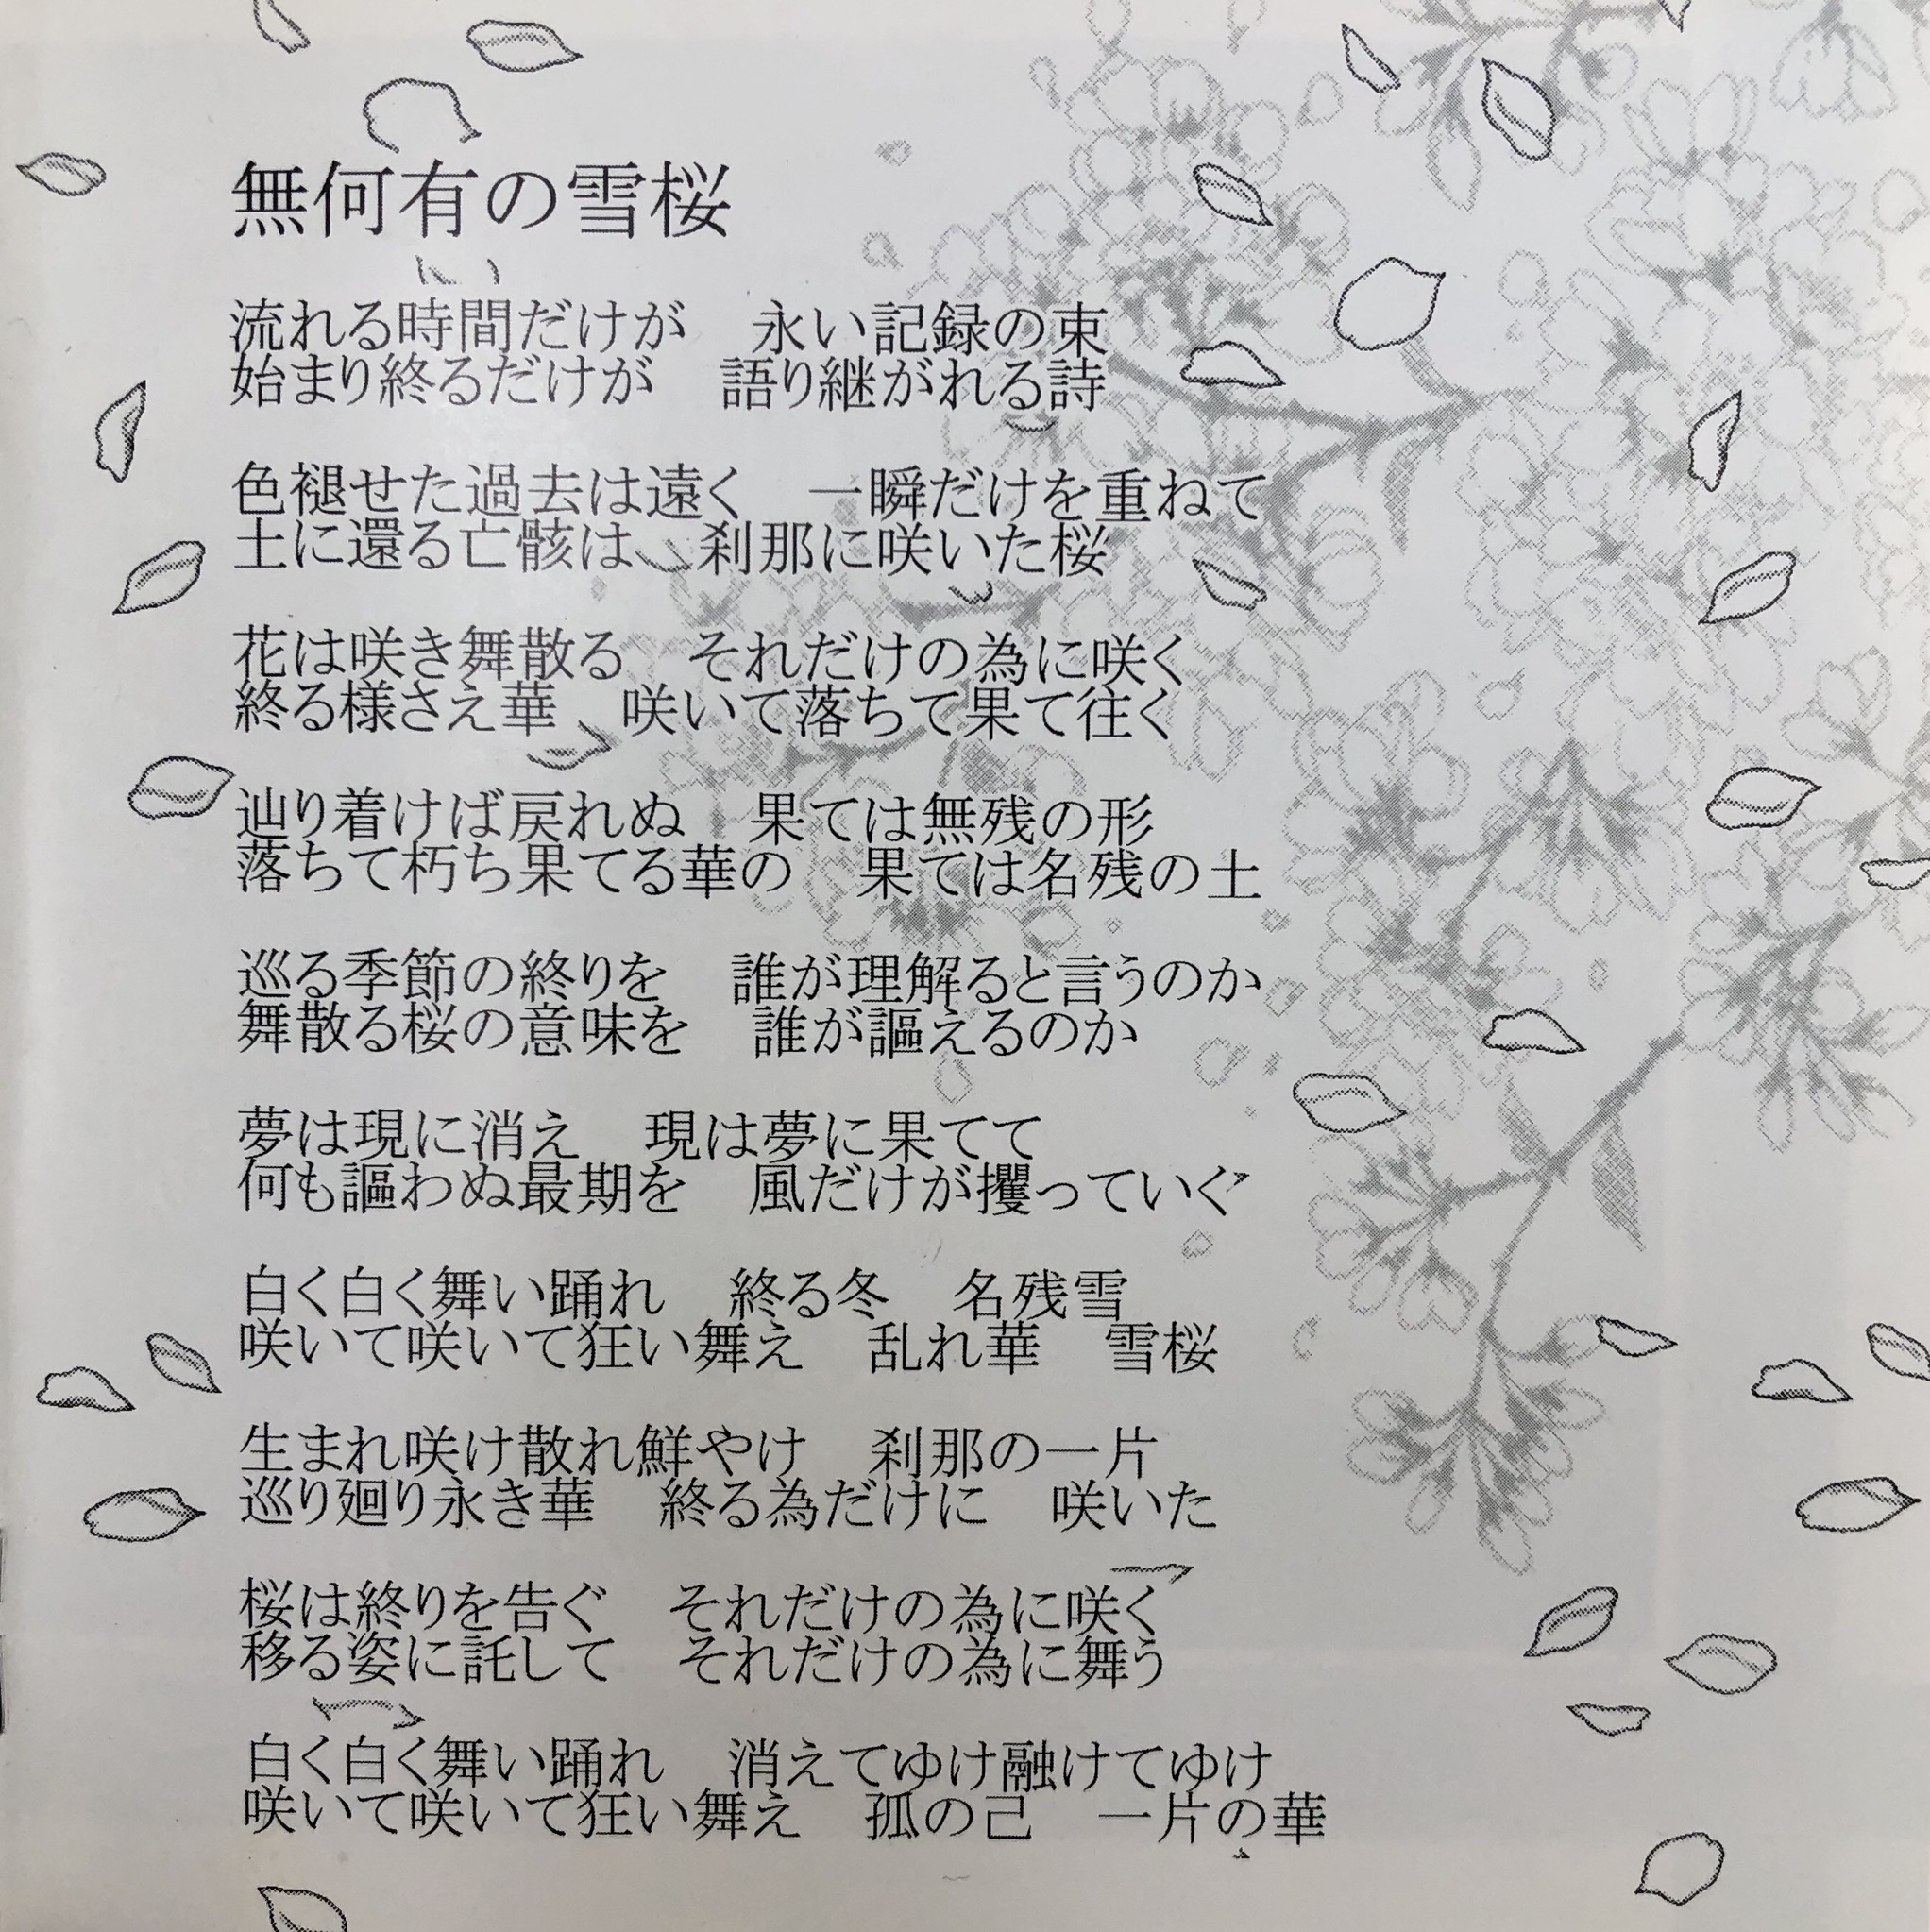 無何有の雪桜
流れる時間だけが　永い記録の束
始まり終るだけが　語り継がれる詩
色褪せた過去は遠く　一瞬だけを重ねて
土に還る亡骸は　刹那に咲いた桜
花は咲き舞散る　それだけの為に咲く
終る様さえ華　咲いて落ちて果て往く
辿り着けば戻れぬ　果ては無残の形
落ちて朽ち果てる華の　果ては名残の土
巡る季節の終りを　誰が理解ると言うのか
舞散る桜の意味を　誰が謳えるのか
夢は現に消え　現は夢に果てて
何も謳わぬ最期を　風だけが攫っていく
白く白く舞い踊れ　終る冬　名残雪
咲いて咲いて狂い舞え　乱れ華　雪桜
生まれ咲け散れ鮮やけ　刹那の一片
巡り廻り永き華　終る為だけに　咲いた
桜は終りを告ぐ　それだけの為に咲く
移る姿に託して　それだけの為に舞う
白く白く舞い踊れ　消えてゆけ融けてゆけ
咲いて咲いて狂い舞え　孤の己　一片の華